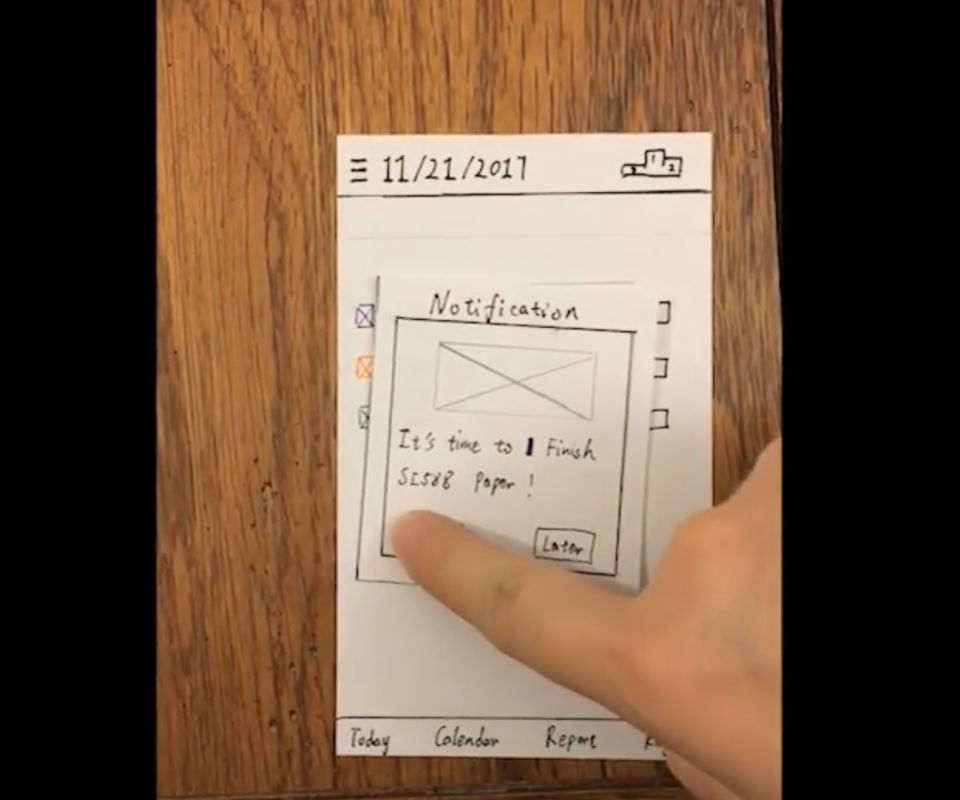 11/21/2017
3 1 2
Notification
It's time to Finish
SI588 Paper!
Later
Today Calendar Report